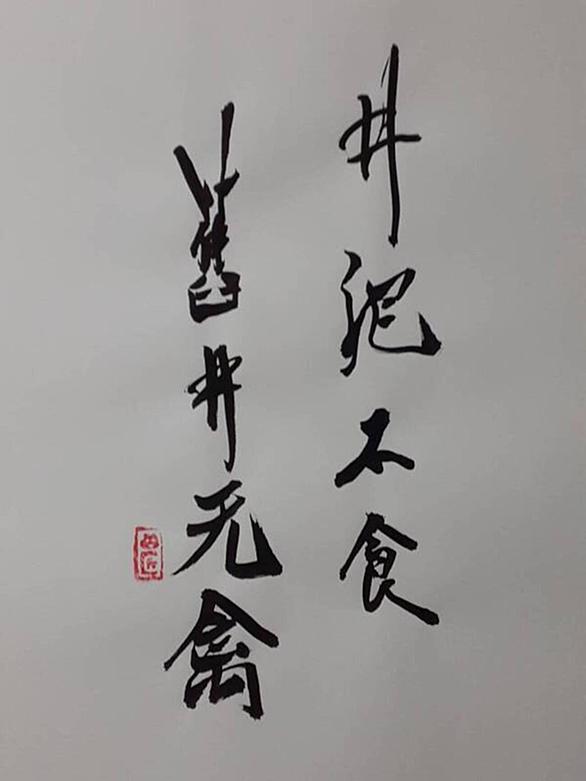 井泥不食
舊井无禽